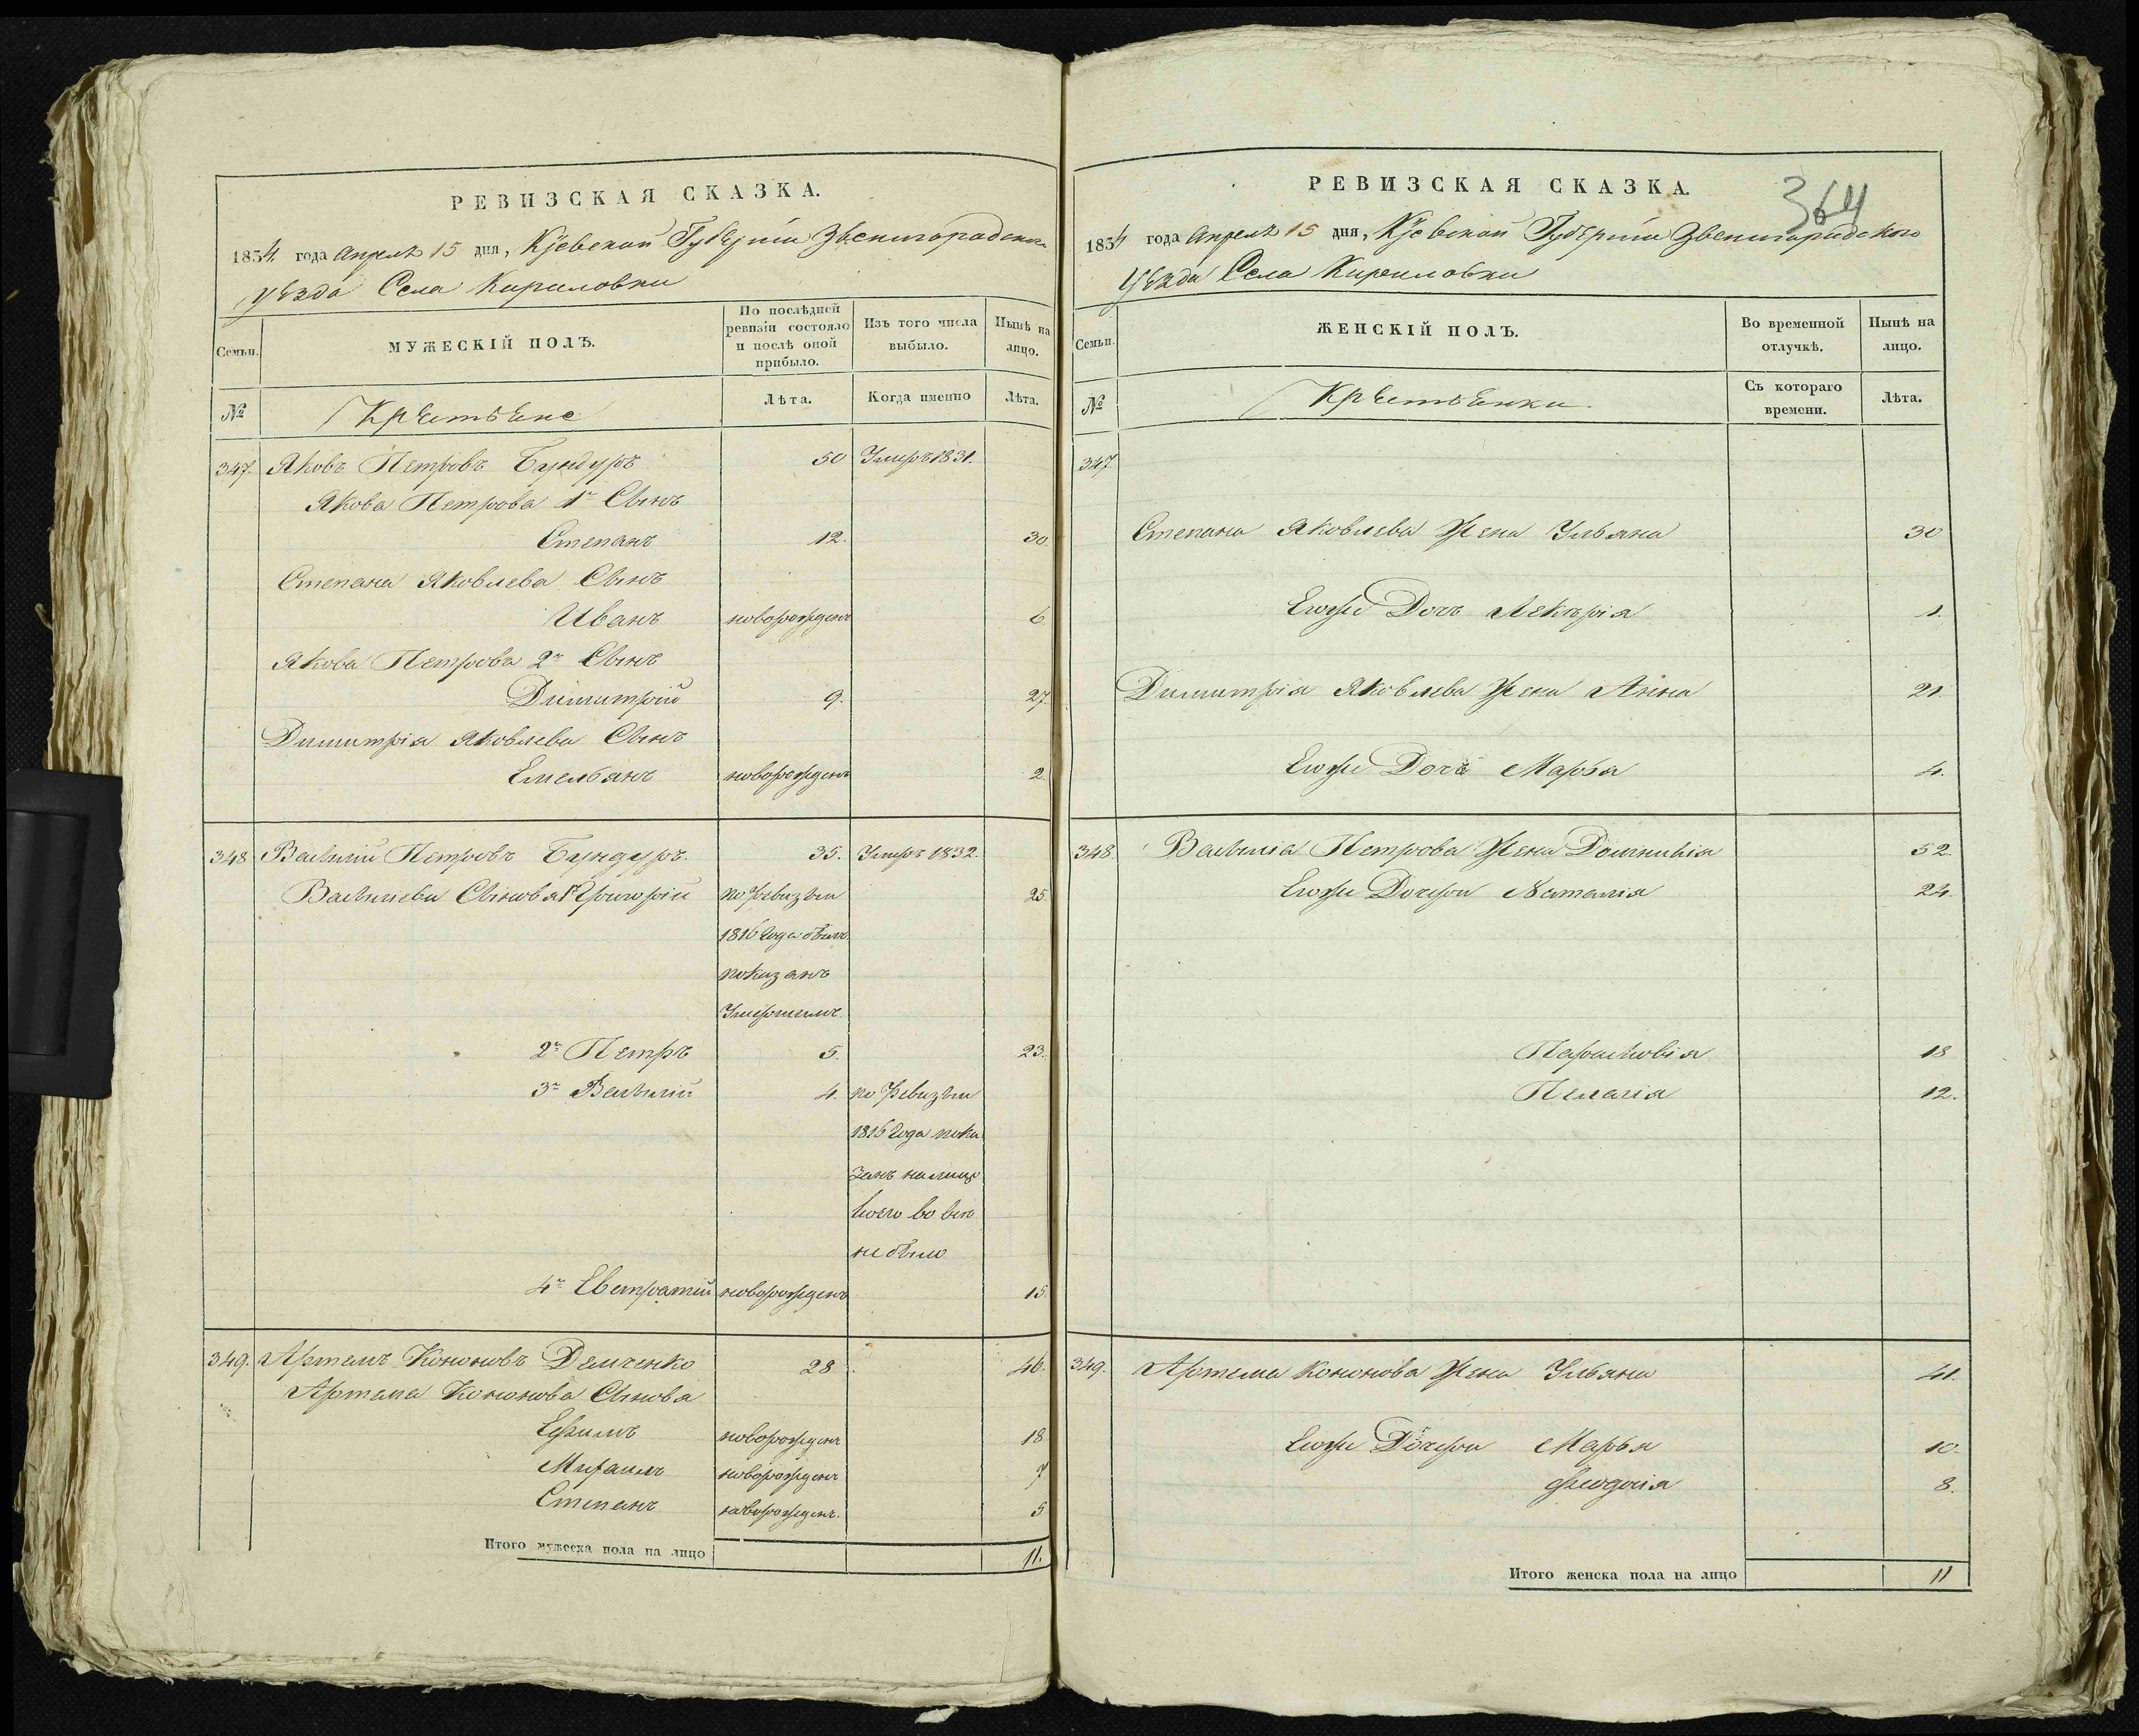 РЕВИЗСКАЯ СКАЗКА.
1834 года Апреля 15 дня, Кіевской Губерніи Звенигородскаго
уѣзда Села Кириловки
Семьи.
МУЖЕСКІЙ ПОЛЪ.
По послѣдней ревизіи состояло и послѣ оной прибыло.
Изъ того числа выбыло.
Нынѣ на лицо.
№
Крѣстьѣне
Лѣта.
Когда именно
Лѣта.
347. Яковъ Петровъ Бундуръ 50 Умеръ 1831.
Якова Петрова 1й Сынъ
Степанъ 12. 30.
Степана Яковлева Сынъ
Иванъ новорожденъ 6.
Якова Петрова 2й Сынъ
Димитрій 9. 27.
Димитрія Яковлева Сынъ
Емельянъ новорожденъ 2.
348 Василій Петровъ Бундуръ. 35. Умеръ 1832.
Васильевы Сыновья 1й Григорій по ревизіи 25.
1816 года былъ
показанъ
Умершемъ.
2й Петръ 5. 23.
3й Василій 4. по ревизіи
1816 года пока
занъ налицо
коего вовсѣ
небыло
4й Евстратій новорожденъ 15.
349. Артемъ Кононовъ Демченко 28 46.
Артема Кононова Сыновья
Ефимъ новорожденъ 18
Михаилъ новорожденъ 7
Степанъ новорожденъ. 5
Итого мужеска пола на лицо 11.
РЕВИЗСКАЯ СКАЗКА.
364
1834 года Апреля 15 дня, Кіевской Губерніи Звенигородскаго
Уѣзда Села Кириловки
Семьи.
ЖЕНСКІЙ ПОЛЪ.
Во временной отлучкѣ.
Нынѣ на лицо.
№
Крѣстьѣнки.
Съ котораго времени.
Лѣта.
347
Степана Яковлева Жена Ульяна 30
Егоже Дочь 1.
Димитрія Яковлева Жена Анна 21
Егоже Дочь Марья 4.
348. Василія Петрова Жена Домникія 52
Егоже Дочери Наталія 24.
Парасковія 18
Пелагія 12.
349. Артема Кононова Жена Ульяна 41.
Егоже Дочери Марья 10.
Феодосія 8.
Итого женска пола на лицо 11